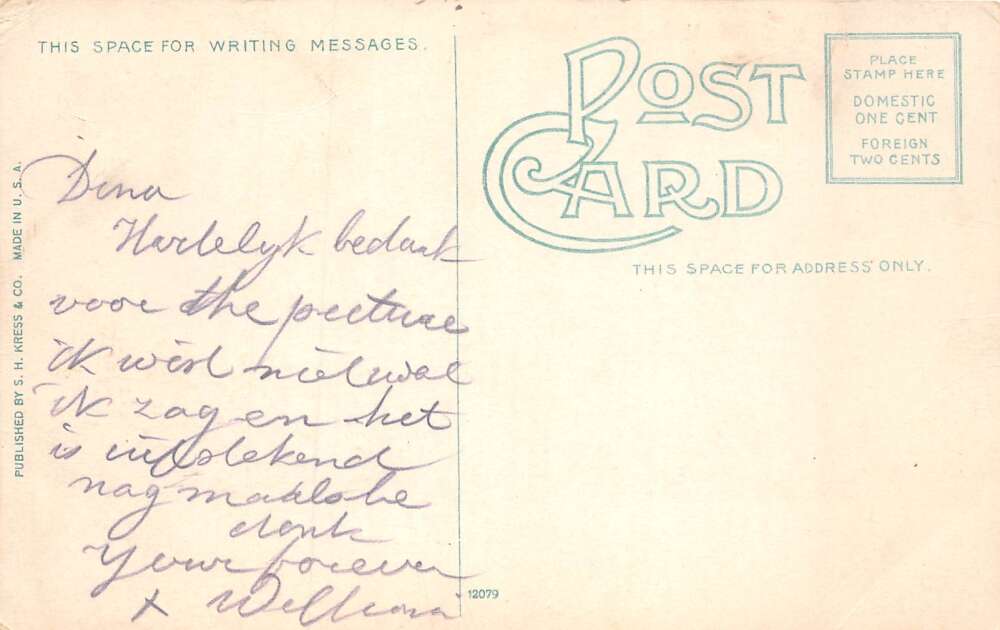 THIS SPACE FOR WRITING MESSAGES.
POST CARD
PLACE
STAMP HERE
DOMESTIC
ONE CENT
FOREIGN
TWO CENTS
THIS SPACE FOR ADDRESS ONLY.
PUBLISHED BY S. H. KRESS & CO. MADE IN U. S. A.
Dena
Hartelyk bedankt
voor the picture
ik wist niet wat
ik zag en het
is
nag
dank
Your forever
x
12079